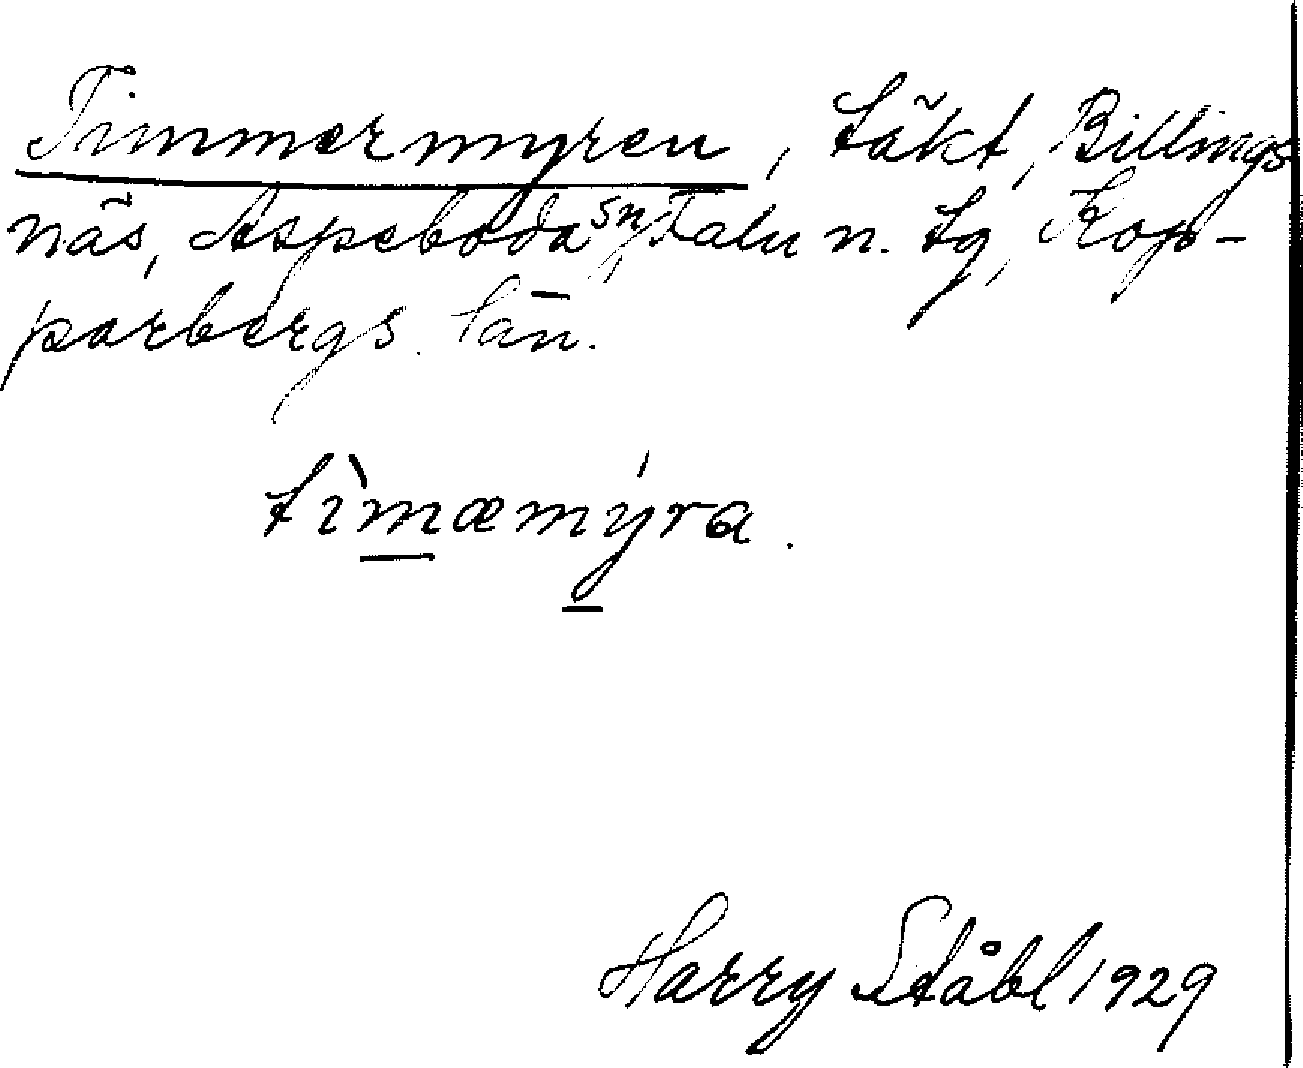 Timmermyren, täkt, Billings
näs, Aspeboda sn, Falu n. tg, Kop-
parbergs län.
tìmæmýra.
Harry Ståhl 1929